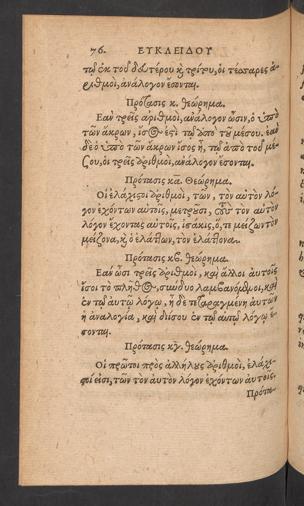 76. ΕΥΚΛΕΙΔΟΥ
τῷ ἐκ τοῦ δευτέρου κ̀ τρίτου, οἱ τέσσαρες ἀ-
ριθμοὶ, ἀνάλογον ἔσονται.
Πρότασις κ. θεώρημα.
Εὰν τρεῖς ἀριθμοὶ, ἀνάλογον ὦσιν, ὁ ὑπὸ
τῶν ἄκρων, ἴσος ἐστὶ τῷ ἀπὸ τοῦ μέσου. ἐὰν
δὲ ὁ ὑπὸ τῶν ἄκρων ἴσος ᾖ, τῷ ἀπὸ τοῦ μέ-
σου, οἱ τρεῖς ἀριθμοὶ, ἀνάλογον ἔσονται.
Πρότασις κα. Θεώρημα.
Οἱ ἐλάχιστοι ἀριθμοὶ, τῶν, τὸν αὐτὸν λό-
γον ἐχόντων αὐτοῖς, μετροῦσι, τοὺς τὸν αὐτὸν
λόγον ἔχοντας αὐτοῖς, ἰσάκις, ὅ, τε μείζων τὸν
μείζονα, κ̀ ὁ ἐλάττων, τὸν ἐλάττονα.
Πρότασις κβ. θεώρημα.
Εὰν ὦσι τρεῖς ἀριθμοὶ, καὶ ἄλλοι αὐτοῖς
ἴσοι τὸ πλῆθος, σύνδυο λαμβανόμενοι, καὶ
ἐν τῷ αὐτῷ λόγῳ, ᾖ δὲ τεταραγμένη αὐτῶν
ἡ ἀναλογία, καὶ διίσου ἐν τῷ αὐτῷ λόγῳ ἔ-
σονται.
Πρότασις κγ. θεώρημα.
Οἱ πρῶτοι πρὸς ἀλλήλους ἀριθμοὶ, ἐλάχι-
στοί εἰσι, τῶν τὸν αὐτὸν λόγον ἐχόντων αὐτοῖς.
Πρότα-